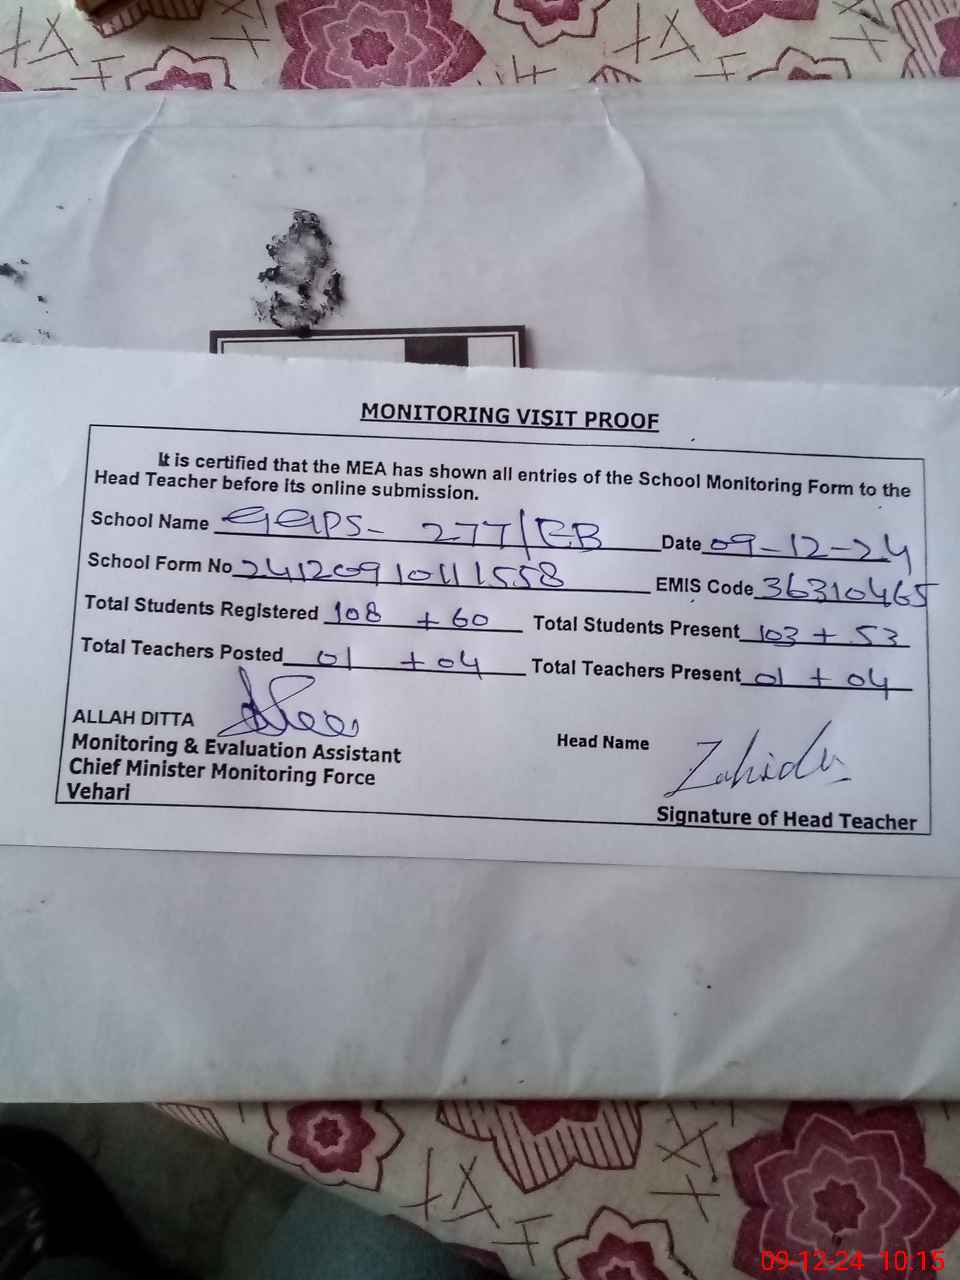 MONITORING VISIT PROOF
It is certified that the MEA has shown all entries of the School Monitoring Form to the
Head Teacher before its online submission.
School Name GGPS- 277/EB Date 09-12-24
School Form No 241209101111558 EMIS Code 36310465
Total Students Registered 108 + 60 Total Students Present 103 + 53
Total Teachers Posted 01 + 04 Total Teachers Present 01 + 04
ALLAH DITTA
Monitoring & Evaluation Assistant Head Name
Chief Minister Monitoring Force
Vehari Signature of Head Teacher
09-12-24 10:15